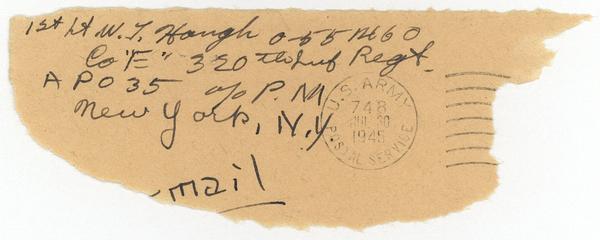 1st Lt W. T. Haugh 0-551260
Co "E" 320th Inf Regt.
APO 35 c/o P.M
New York, N.Y
mail
U.S. ARMY
748
JUL 30
1945
POSTAL SERVICE